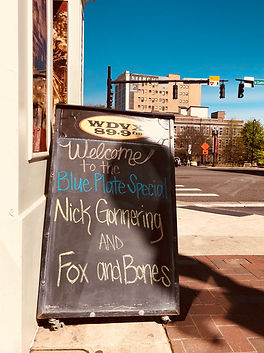 WDVX
89.9 fm
Welcome
to the
Blue Plate Special
Nick Gonnering
AND
Fox and Bones